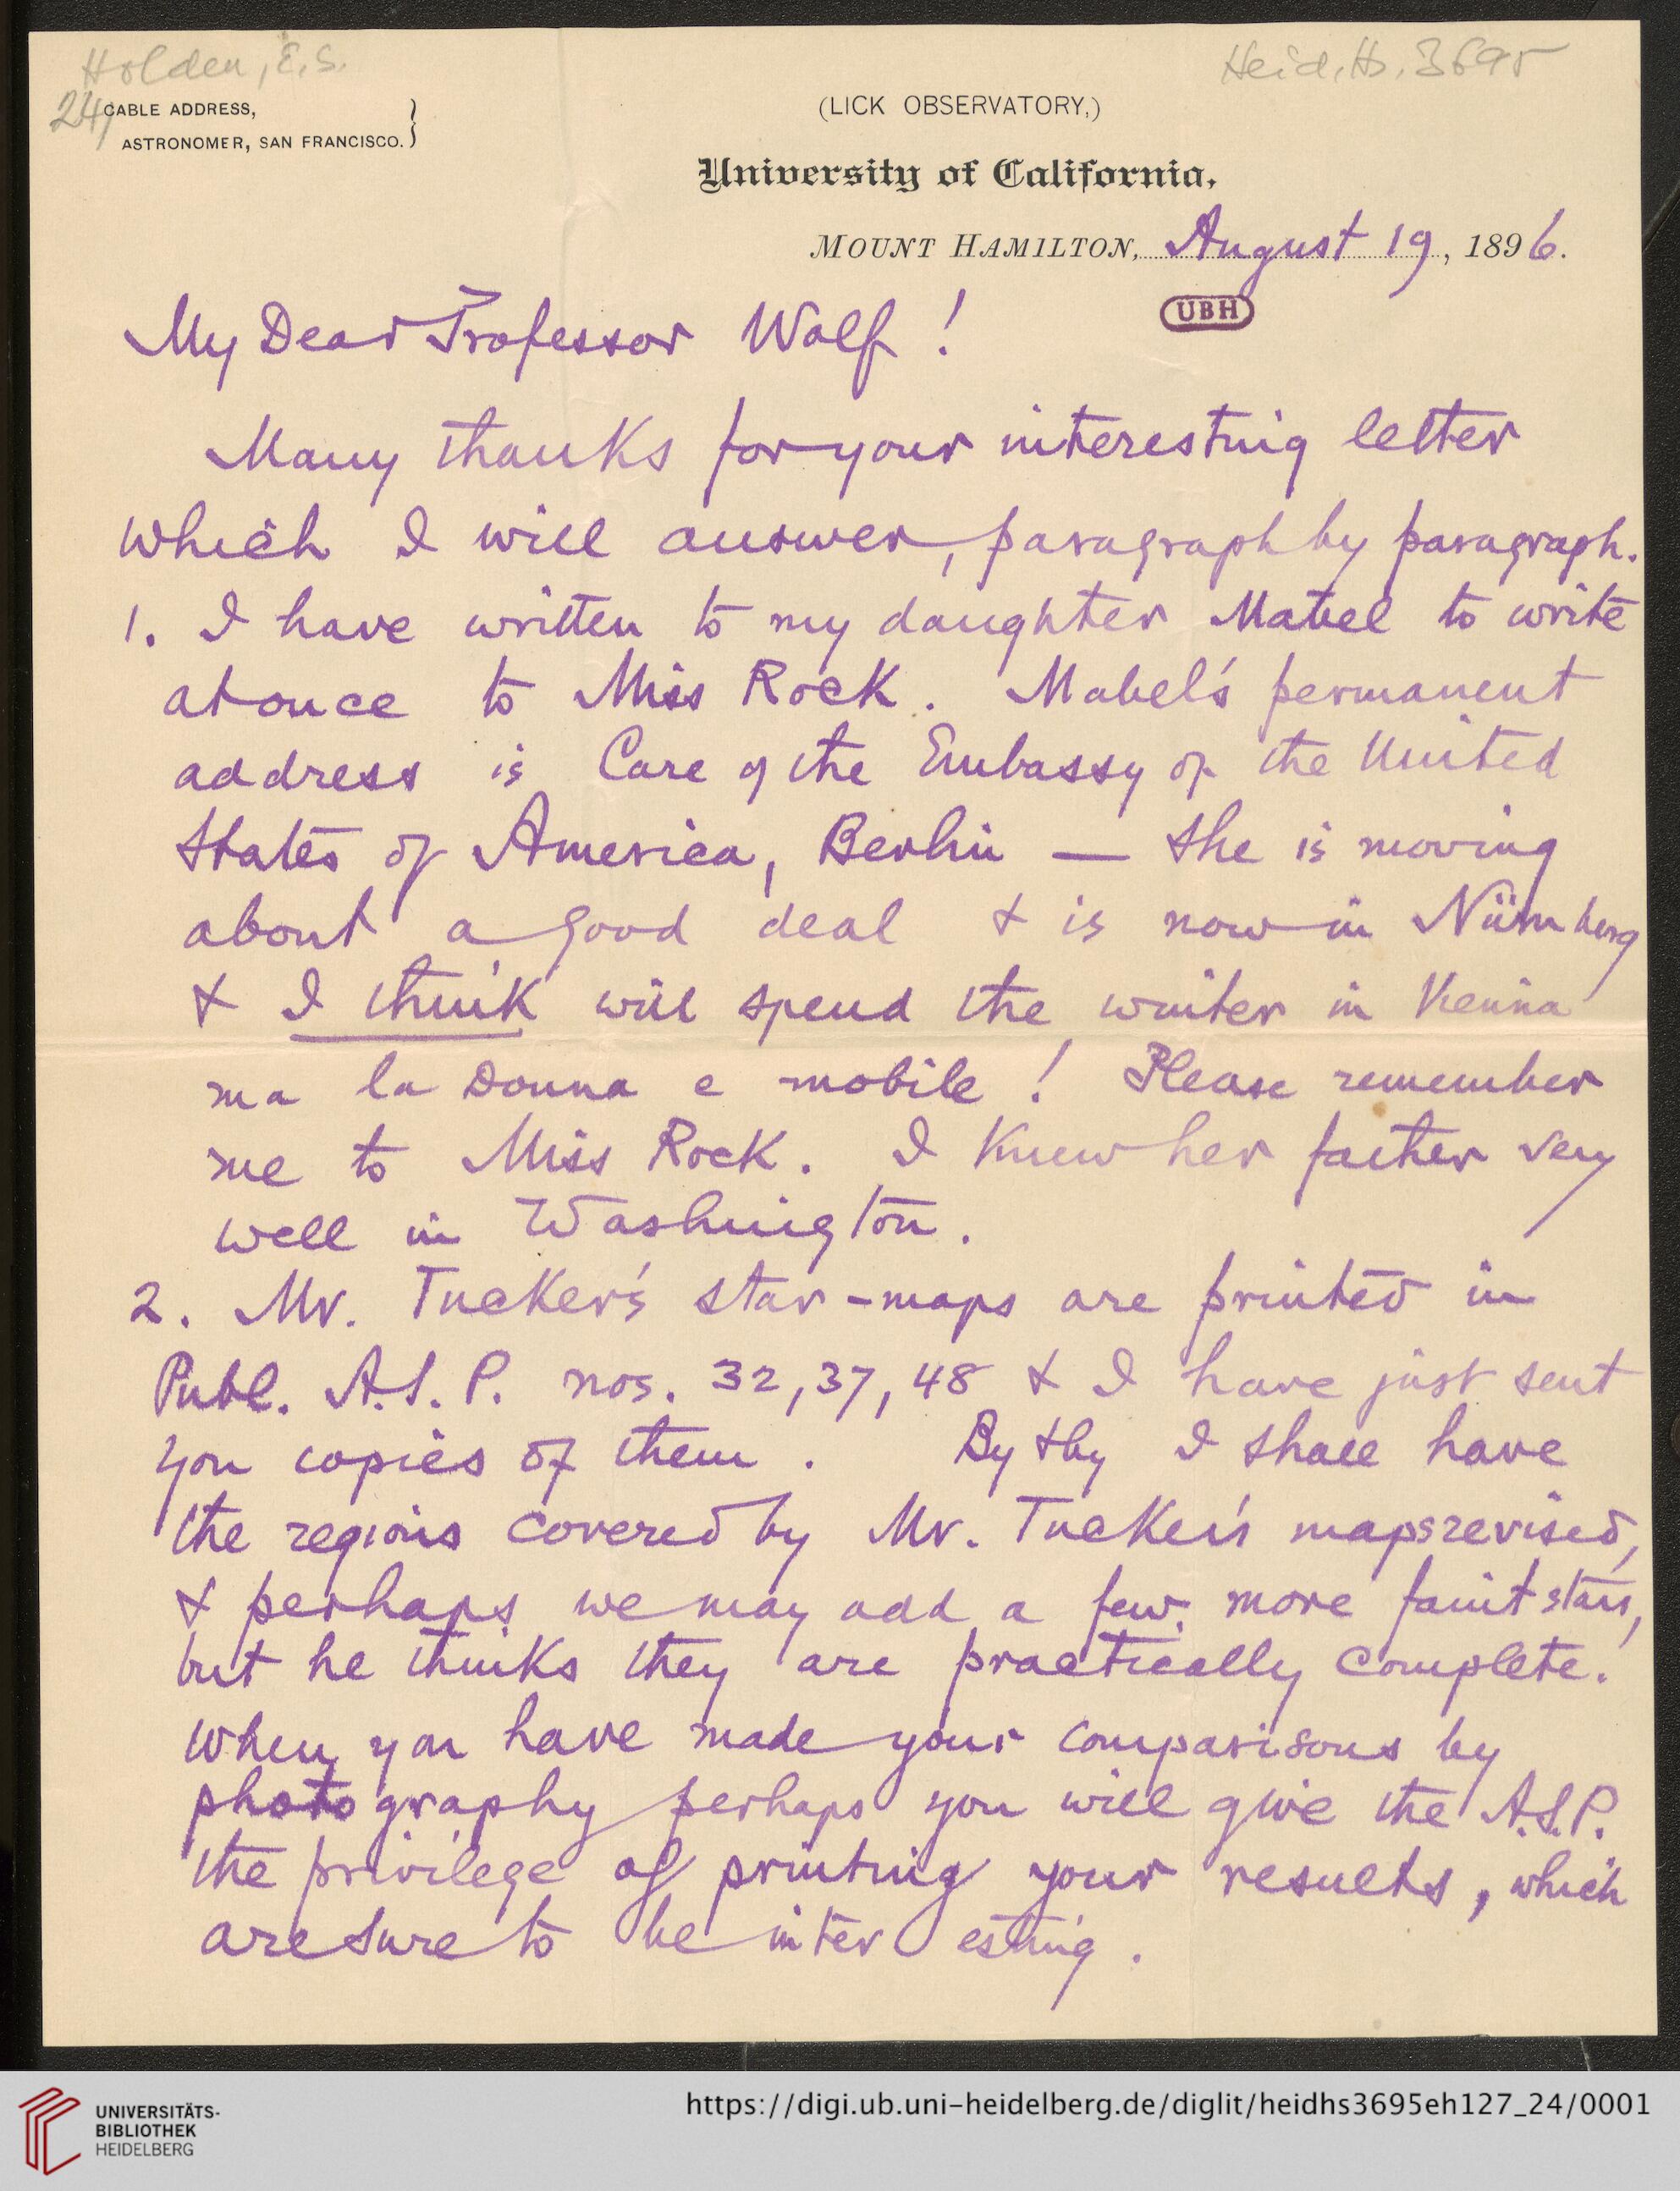 Holden, E. S.
Heid. Hs. 3695
24,
CABLE ADDRESS,
ASTRONOMER, SAN FRANCISCO.
(LICK OBSERVATORY,)
University of California,
MOUNT HAMILTON, August 19, 1896.
UBH
My Dear Professor Wolf!
Many thanks for your interesting letter
which I will answer, paragraph by paragraph.
1. I have written to my daughter Mabel to write
at once to Miss Rock. Mabel's permanent
address is Care of the Embassy of the United
States of America, Berlin — She is moving
about a good deal & is now in Nürnberg
& I think will spend the winter in Vienna
ma la Donna e mobile! Please remember
me to Miss Rock. I knew her father very
well in Washington.
2. Mr. Tucker's star-maps are printed in
Publ. A.S.P. nos. 32, 37, 48 & I have just sent
you copies of them. By & by I shall have
the regions covered by Mr. Tucker's maps revised,
& perhaps we may add a few more faint stars,
but he thinks they are practically complete.
When you have made your comparisons by
photography perhaps you will give the A.S.P.
the privilege of printing your results, which
are sure to be interesting.
UNIVERSITÄTS-
BIBLIOTHEK
HEIDELBERG
https://digi.ub.uni-heidelberg.de/diglit/heidhs3695eh127_24/0001